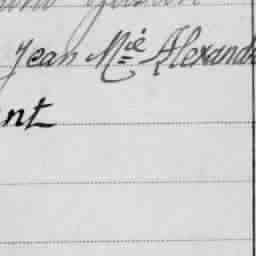 Jean M^ie Alexandr
nt